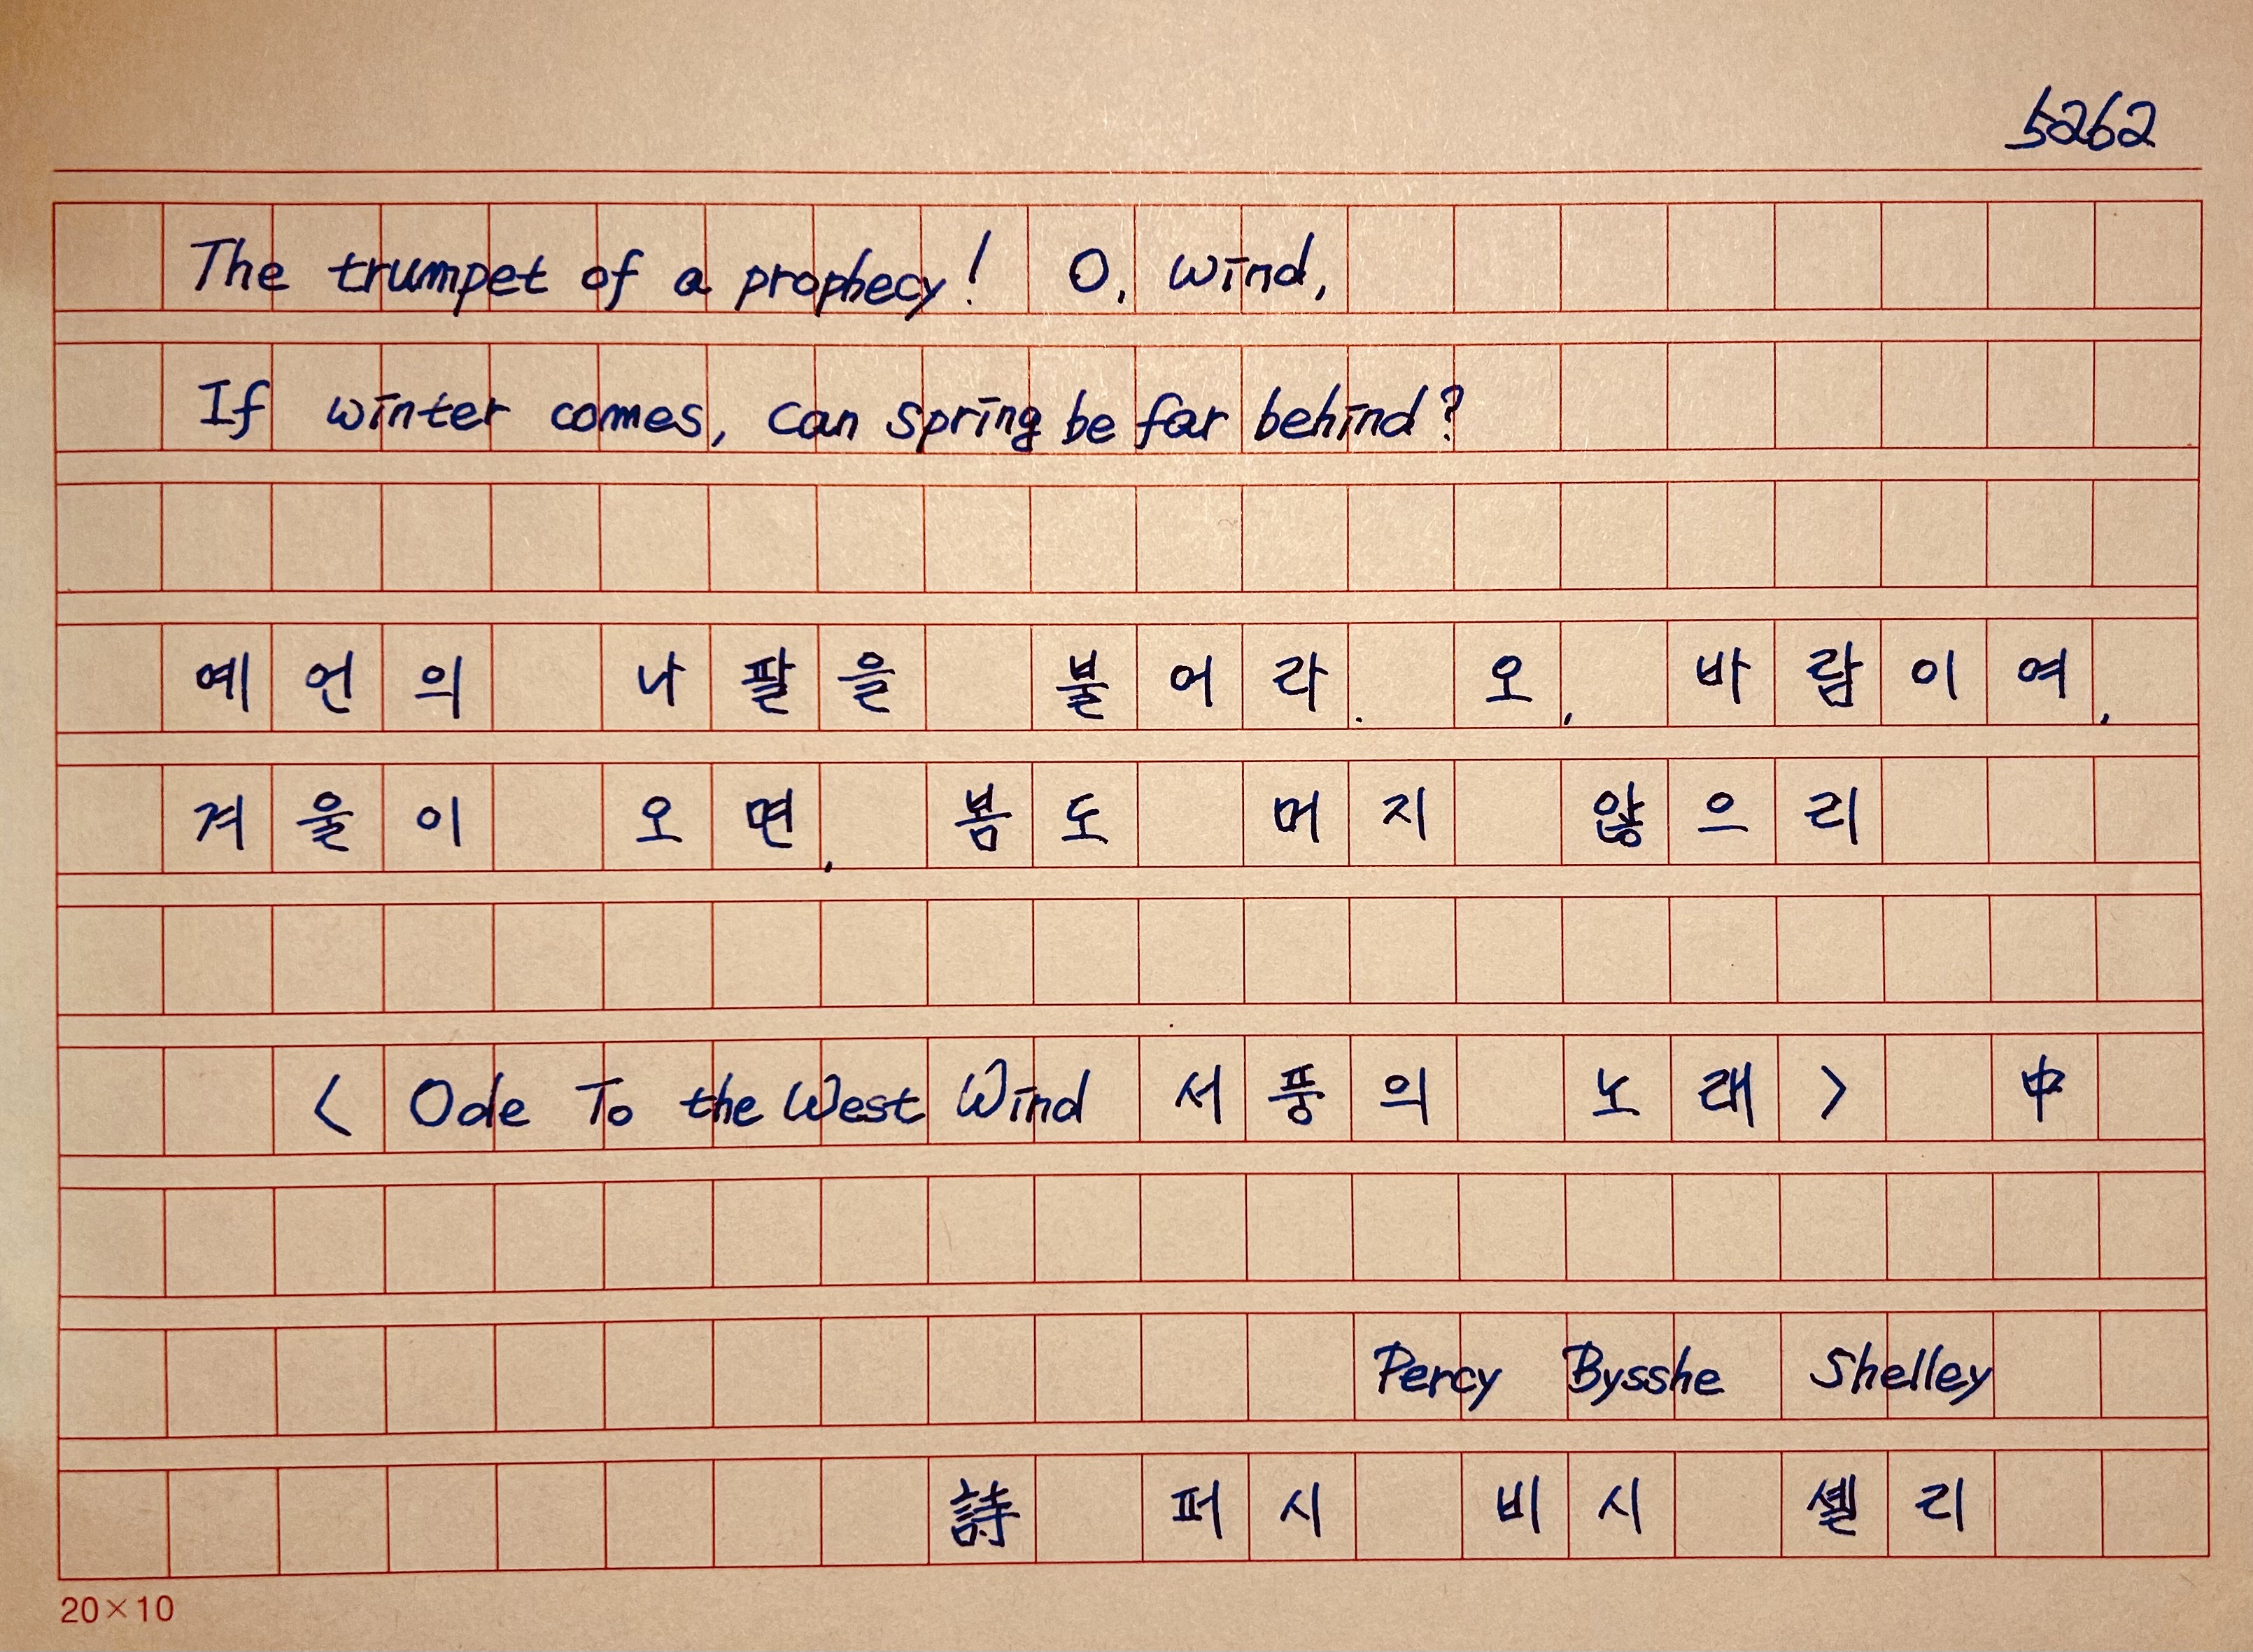 5262
The trumpet of a prophecy! O, wind,
If winter comes, can spring be far behind?
예언의 나팔을 불어라. 오, 바람이여,
겨울이 오면, 봄도 머지 않으리
< Ode To the West Wind 서풍의 노래> 中
Percy Bysshe Shelley
詩 퍼시 비시 셸리
20×10